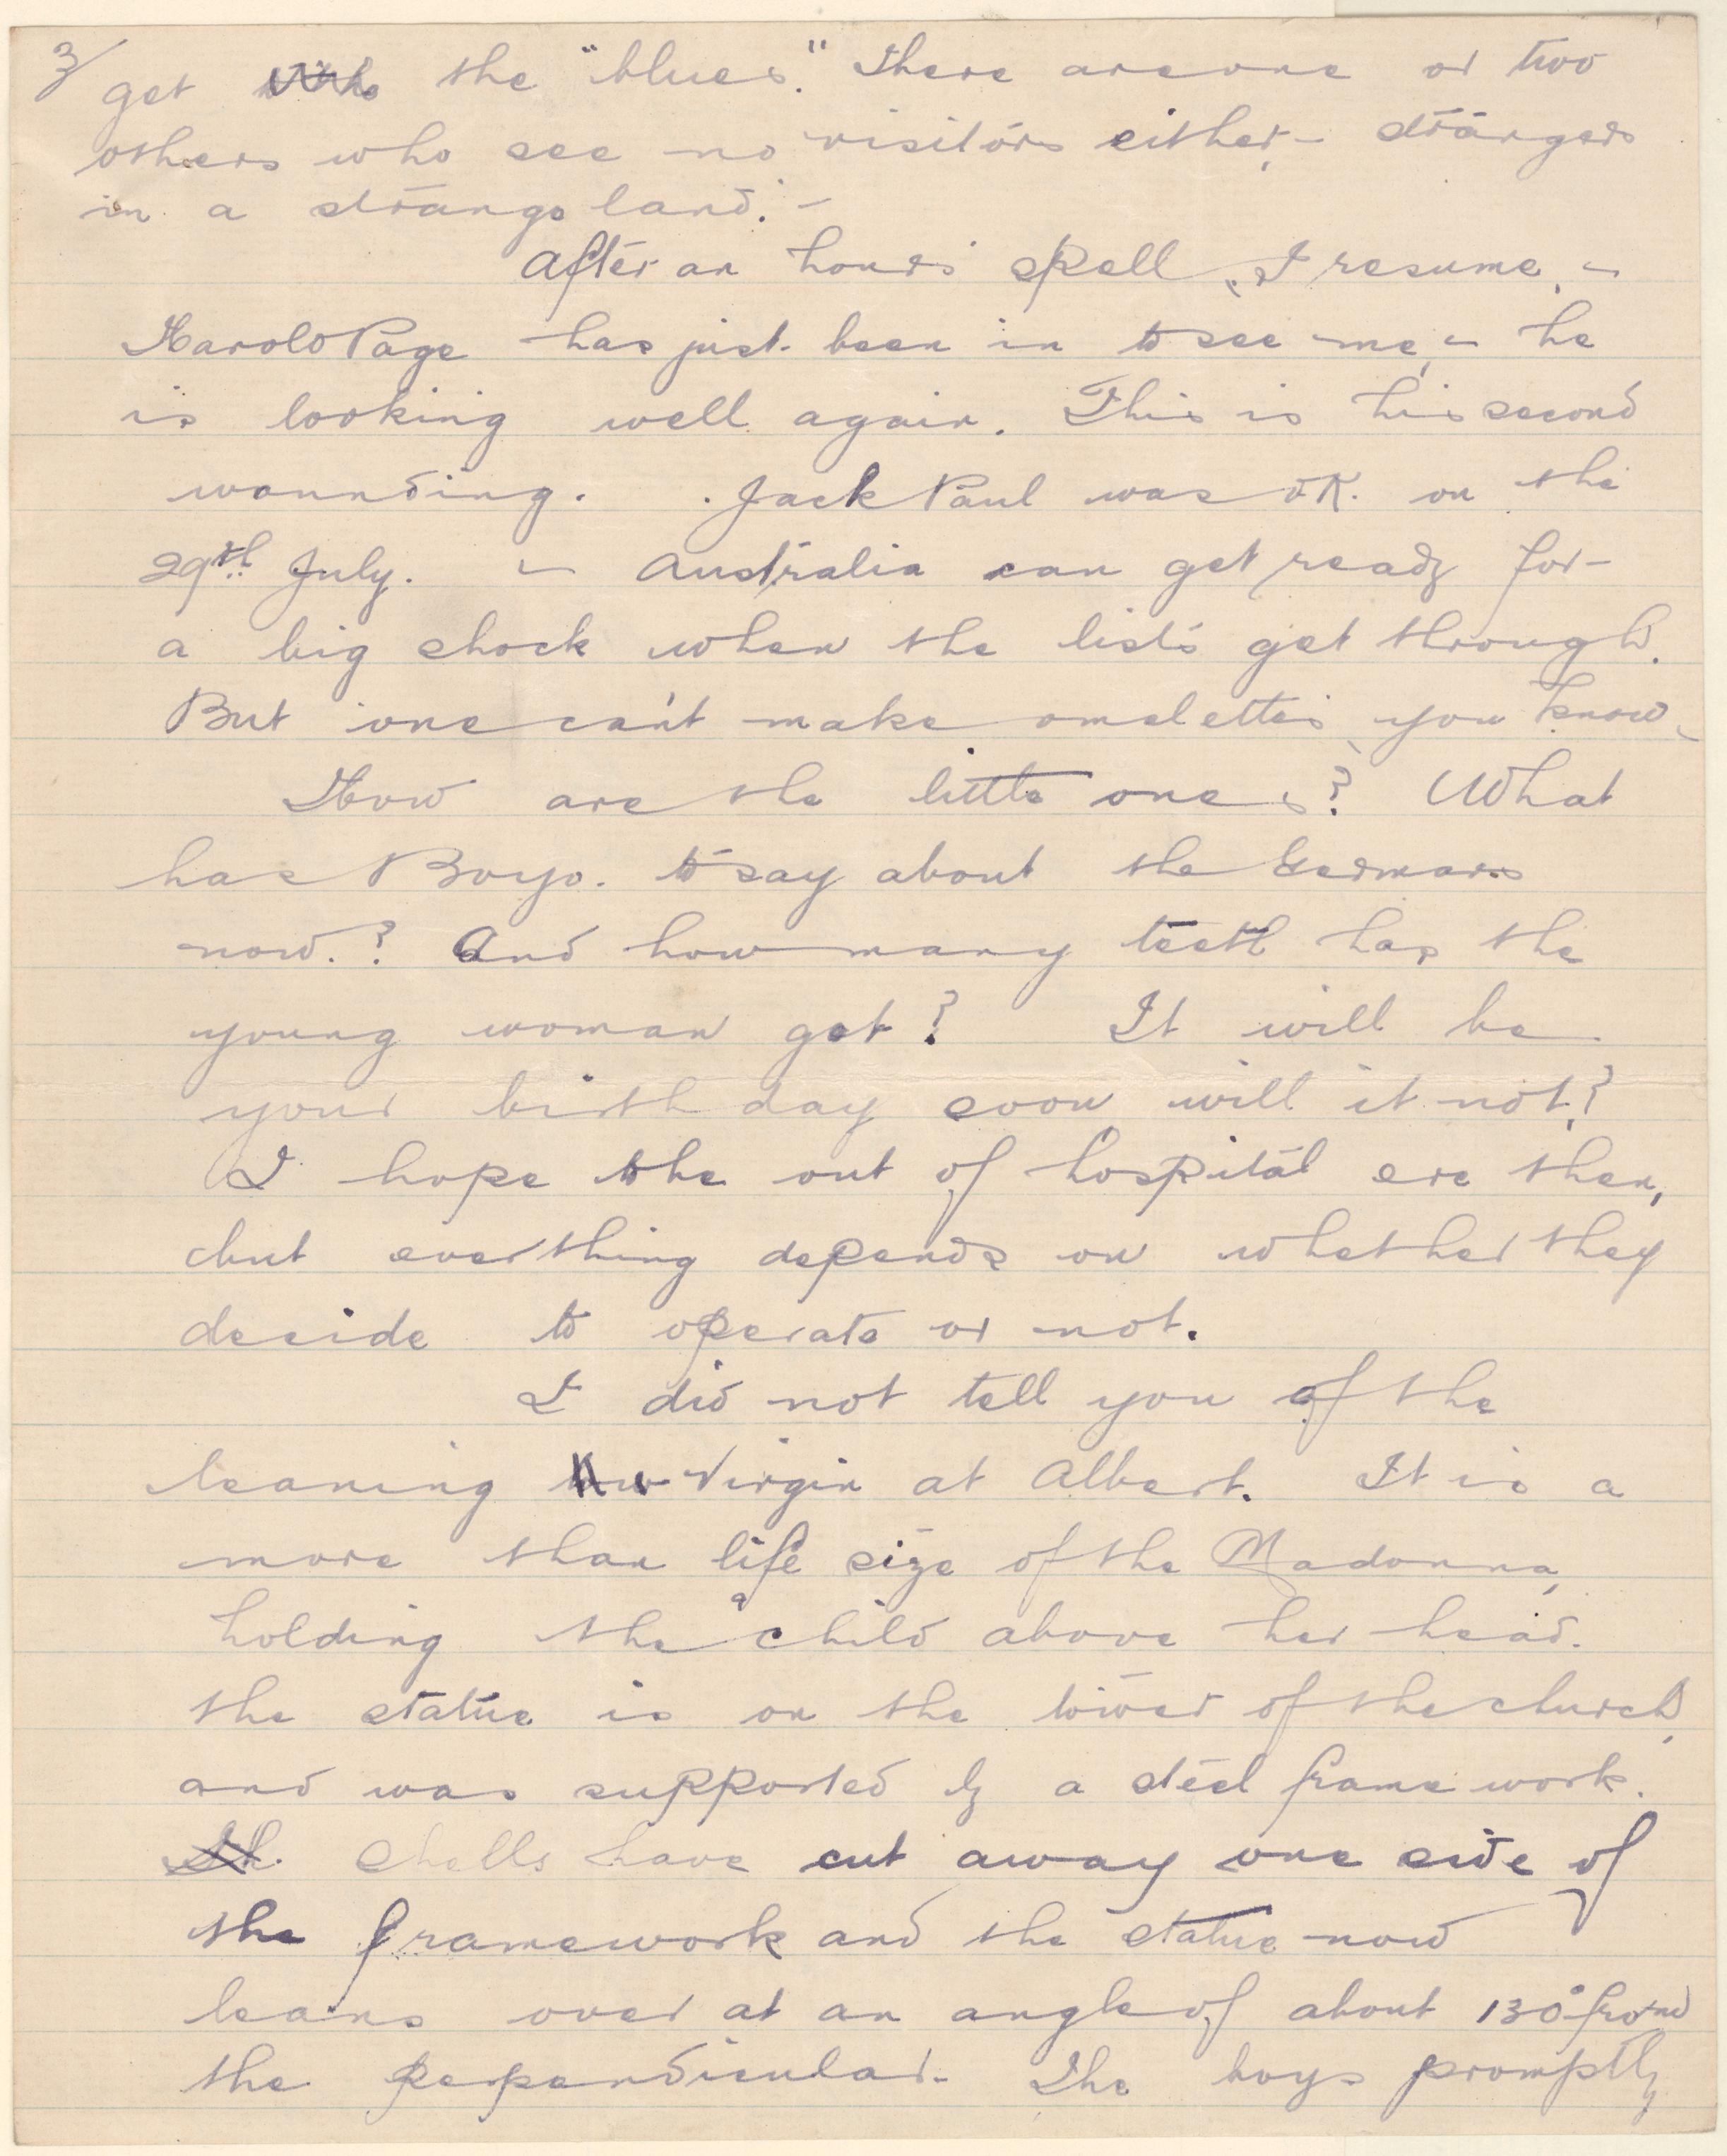 3/
get the "blues". There are one or two
others who see no visitors either, - strangers
in a strange land. -
After an hours spell, I resume, -
Harold Page has just been in to see me, - he
is looking well again. This is his second
wounding. Jack Paul was OK. on the
29th July. - Australia can get ready for
a big shock when the lists get through.
But one can't make omelettes, you know -
How are the little ones? What
has Boyo. to say about the Germans
now.? And how many teeth has the
young woman got? It will be
your birthday soon will it not?
I hope to be out of hospital ere then,
but everthing depends on whether they
decide to operate or not.
I did not tell you of the
leaning Virgin at Albert. It is a
more than life size of the Madonna,
holding the child above her head.
the statue is on the tower of the church,
and was supported by a steel frame work.
Shells have cut away one side of
the framework and the statue now
leans over at an angle of about 130° from
the perpendicular. The boys promptly